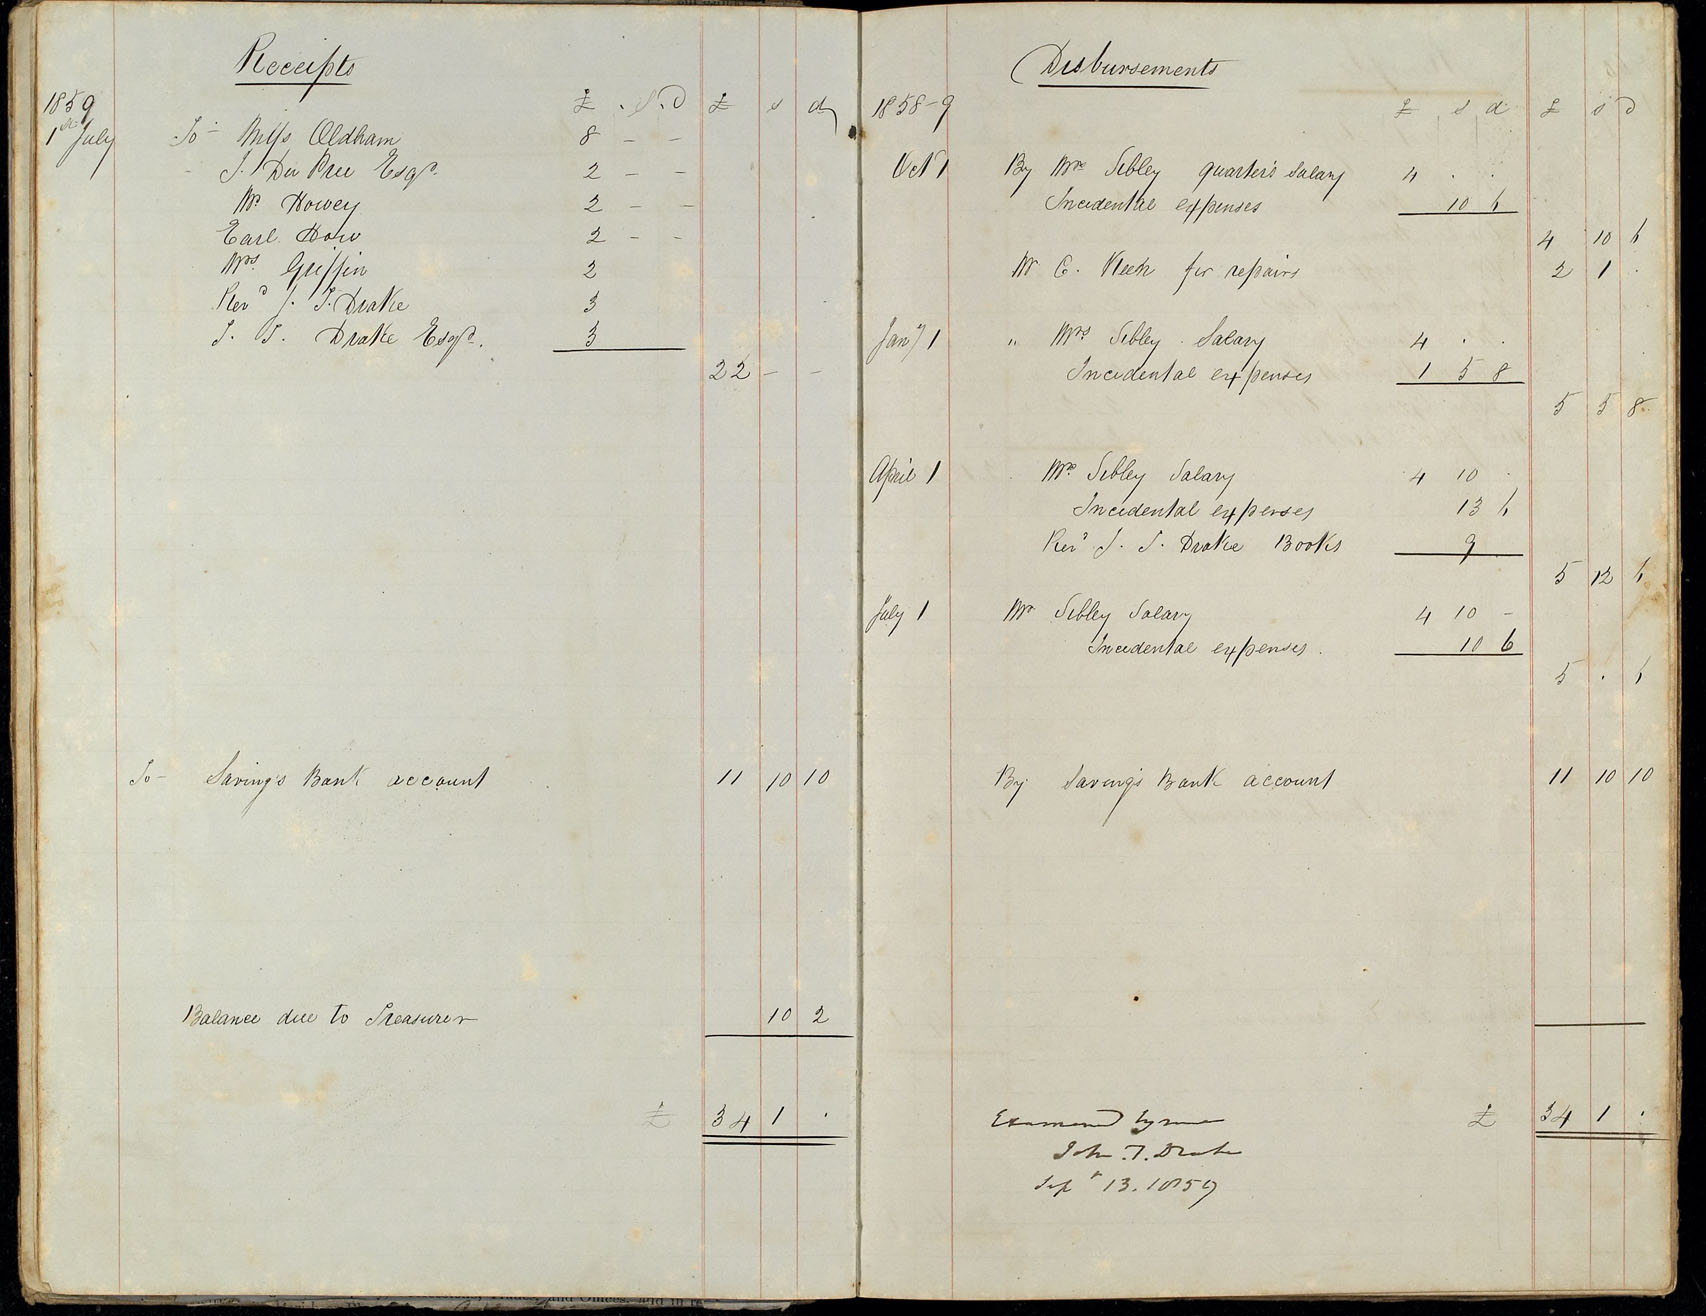 Receipts
1859 £ . s . d £ s d
1st July To - Miss Oldham 8 - -
T. Du Pree Esqr. 2 - -
Mr Howey 2 - -
Earl How 2 - -
Mrs. Griffin 2
Revd J. T. Drake 3
T. T. Drake Esqr. 3
22 - -
To - Saving's Bank account 11 10 10
Balance due to Treasurer 10 2
£ 34 1 .
Disbursements
1858-9 £ s d £ s d
Oct 1 By Mrs Sibley quarter's Salary 4 . .
Incidental expenses 10 6
4 10 6
Mr C. Keen for repairs 2 1 .
Jany 1 " Mrs Sibley . Salary 4 . .
Incidental expenses 1 5 8
5 5 8
April 1 Mrs Sibley Salary 4 10 .
Incidental expenses 13 6
Revd J. T. Drake Books 9
5 12 6
July 1 Mrs Sibley Salary 4 10 -
Incidental expenses . 10 6
5 . 6
By Saving's Bank account 11 10 10
£ 34 1 .
Examined by me
John T. Drake
Sepr 13. 1859